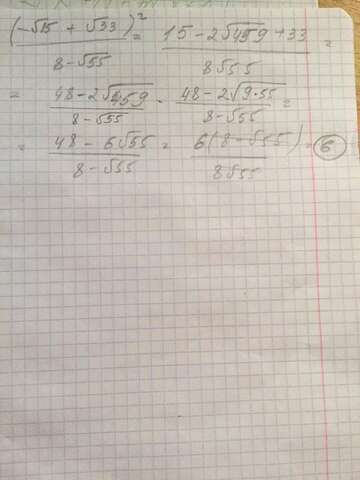 (-√15 + √33)² / 8-√55 = 15-2√459+33 / 8√55 =
= 48-2√459 / 8-√55 · 48-2√9·55 / 8-√55 =
= 48-6√55 / 8-√55 = 6(8-√55) / 8√55 = 6